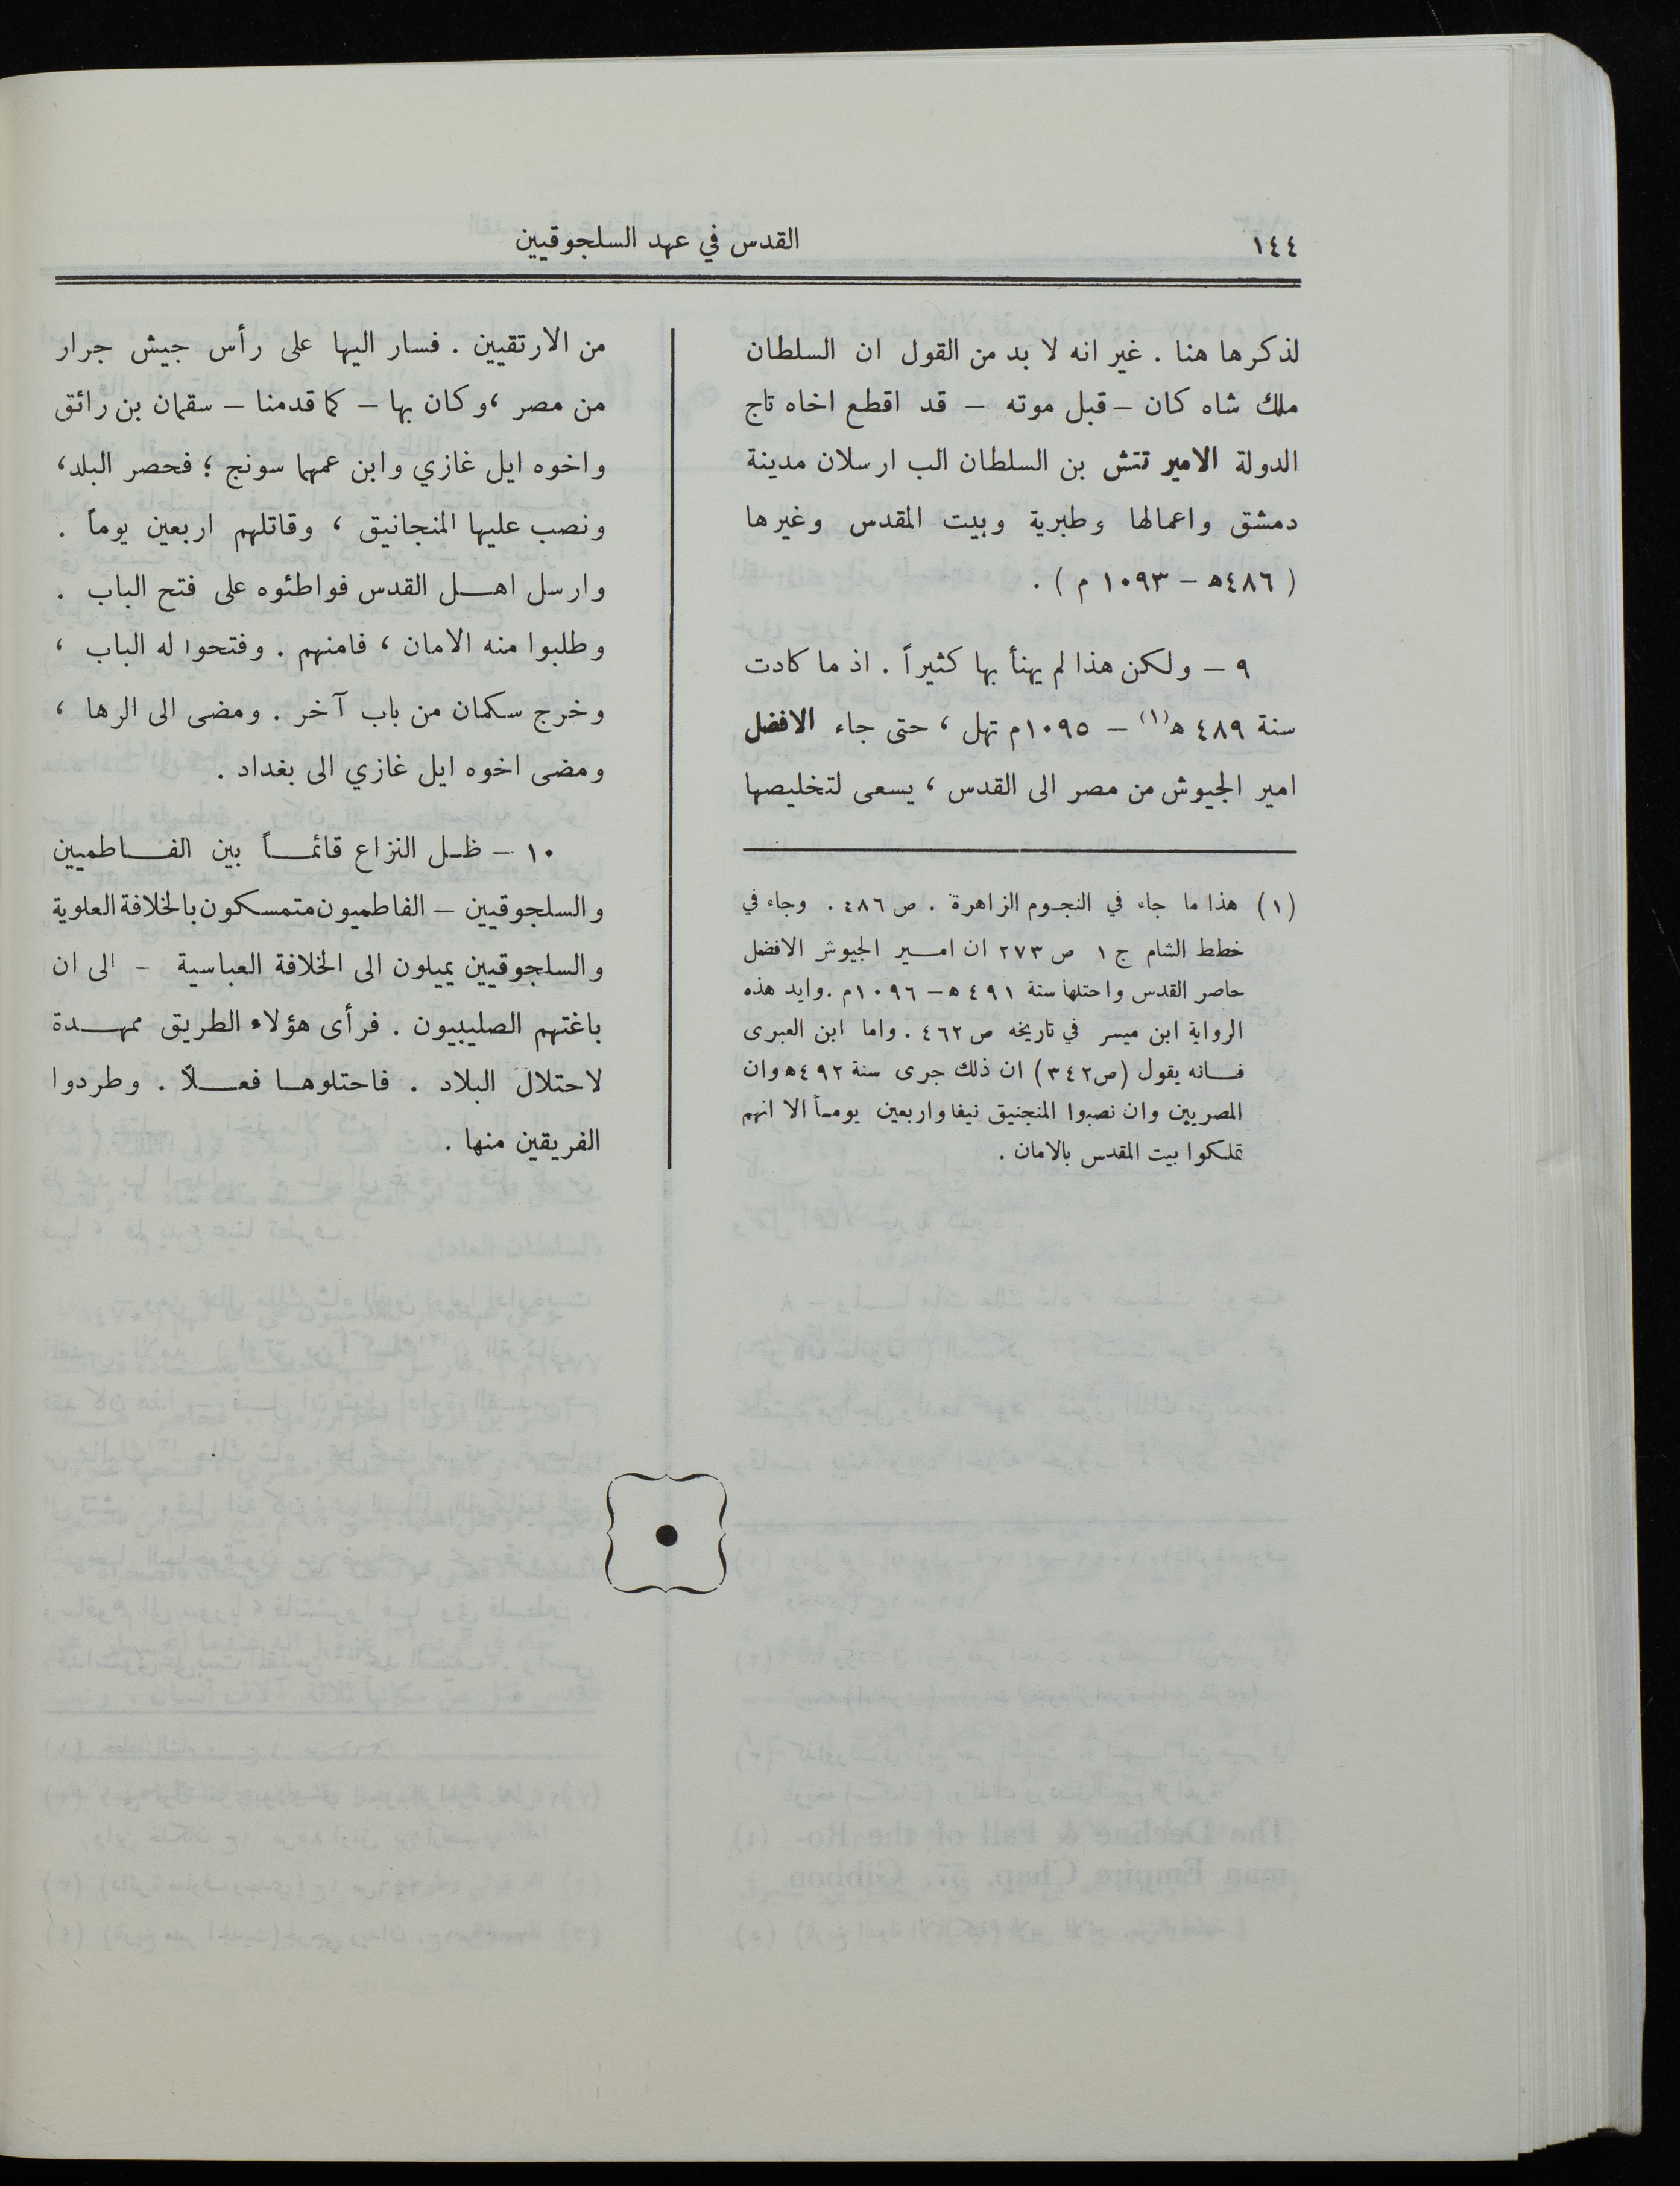 ١٤٤
القدس في عهد السلجوقيين
لذكرها هنا . غير انه لا بد من القول ان السلطان
ملك شاه كان – قبل موته – قد اقطع اخاه تاج
الدولة الامير تتش بن السلطان الب ارسلان مدينة
دمشق واعمالها وطبرية وبيت المقدس وغيرها
( ٤٨٦ه – ١٠٩٣ م ) .
٩ – ولكن هذا لم يهنأ بها كثيراً . اذ ما كادت
سنة ٤٨٩ ه(١) – ١٠٩٥م تهل ، حتى جاء الافضل
امير الجيوش من مصر الى القدس ، يسعى لتخليصها
(١) هذا ما جاء في النجوم الزاهرة . ص ٤٨٦ . وجاء في
خطط الشام ج ١ ص ٢٧٣ ان امير الجيوش الافضل
حاصر القدس واحتلها سنة ٤٩١ ه – ١٠٩٦م .وايد هذه
الرواية ابن ميسر في تاريخه ص ٤٦٢ . واما ابن العبرى
فانه يقول (ص٣٤٢) ان ذلك جرى سنة ٤٩٢ه وان
المصريين وان نصبوا المنجنيق نيفا واربعين يوماً الا انهم
تملكوا بيت المقدس بالامان .
من الارتقيين . فسار اليها على رأس جيش جرار
من مصر ، وكان بها – كما قدمنا – سقمان بن رائق
واخوه ايل غازي وابن عمهما سونج ؛ فحصر البلد ،
ونصب عليها المنجانيق ، وقاتلهم اربعين يوماً .
وارسل اهل القدس فواطئوه على فتح الباب .
وطلبوا منه الامان ، فامنهم . وفتحوا له الباب ،
وخرج سكمان من باب آخر . ومضى الى الرها ،
ومضى اخوه ايل غازي الى بغداد .
١٠ – ظل النزاع قائماً بين الفاطميين
والسلجوقيين – الفاطميون متمسكون بالخلافة العلوية
والسلجوقيين يميلون الى الخلافة العباسية – الى ان
باغتهم الصليبيون . فرأى هؤلاء الطريق ممهدة
لاحتلال البلاد . فاحتلوها فعلاً . وطردوا
الفريقين منها .